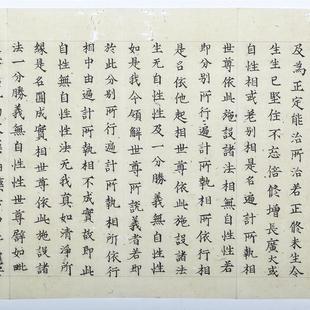 及為正定能治所治若正修未生令
生生已堅住不忘倍修增長廣大或
自性相或差別相是名遍計所執相
世尊依此施設諸法相無自性性若
即分別所行遍計所執相所依行相
是名依他起相世尊依此施設諸法
生無自性性及一分勝義無自性性
如是我今領解世尊所說義者若即
於此分別所行遍計所執相所依行
相中由遍計所執相不成實故即此
自性無自性性法無我真如清淨所
緣是名圓成實相世尊依此施設諸
法一分勝義無自性性世尊譬如毗